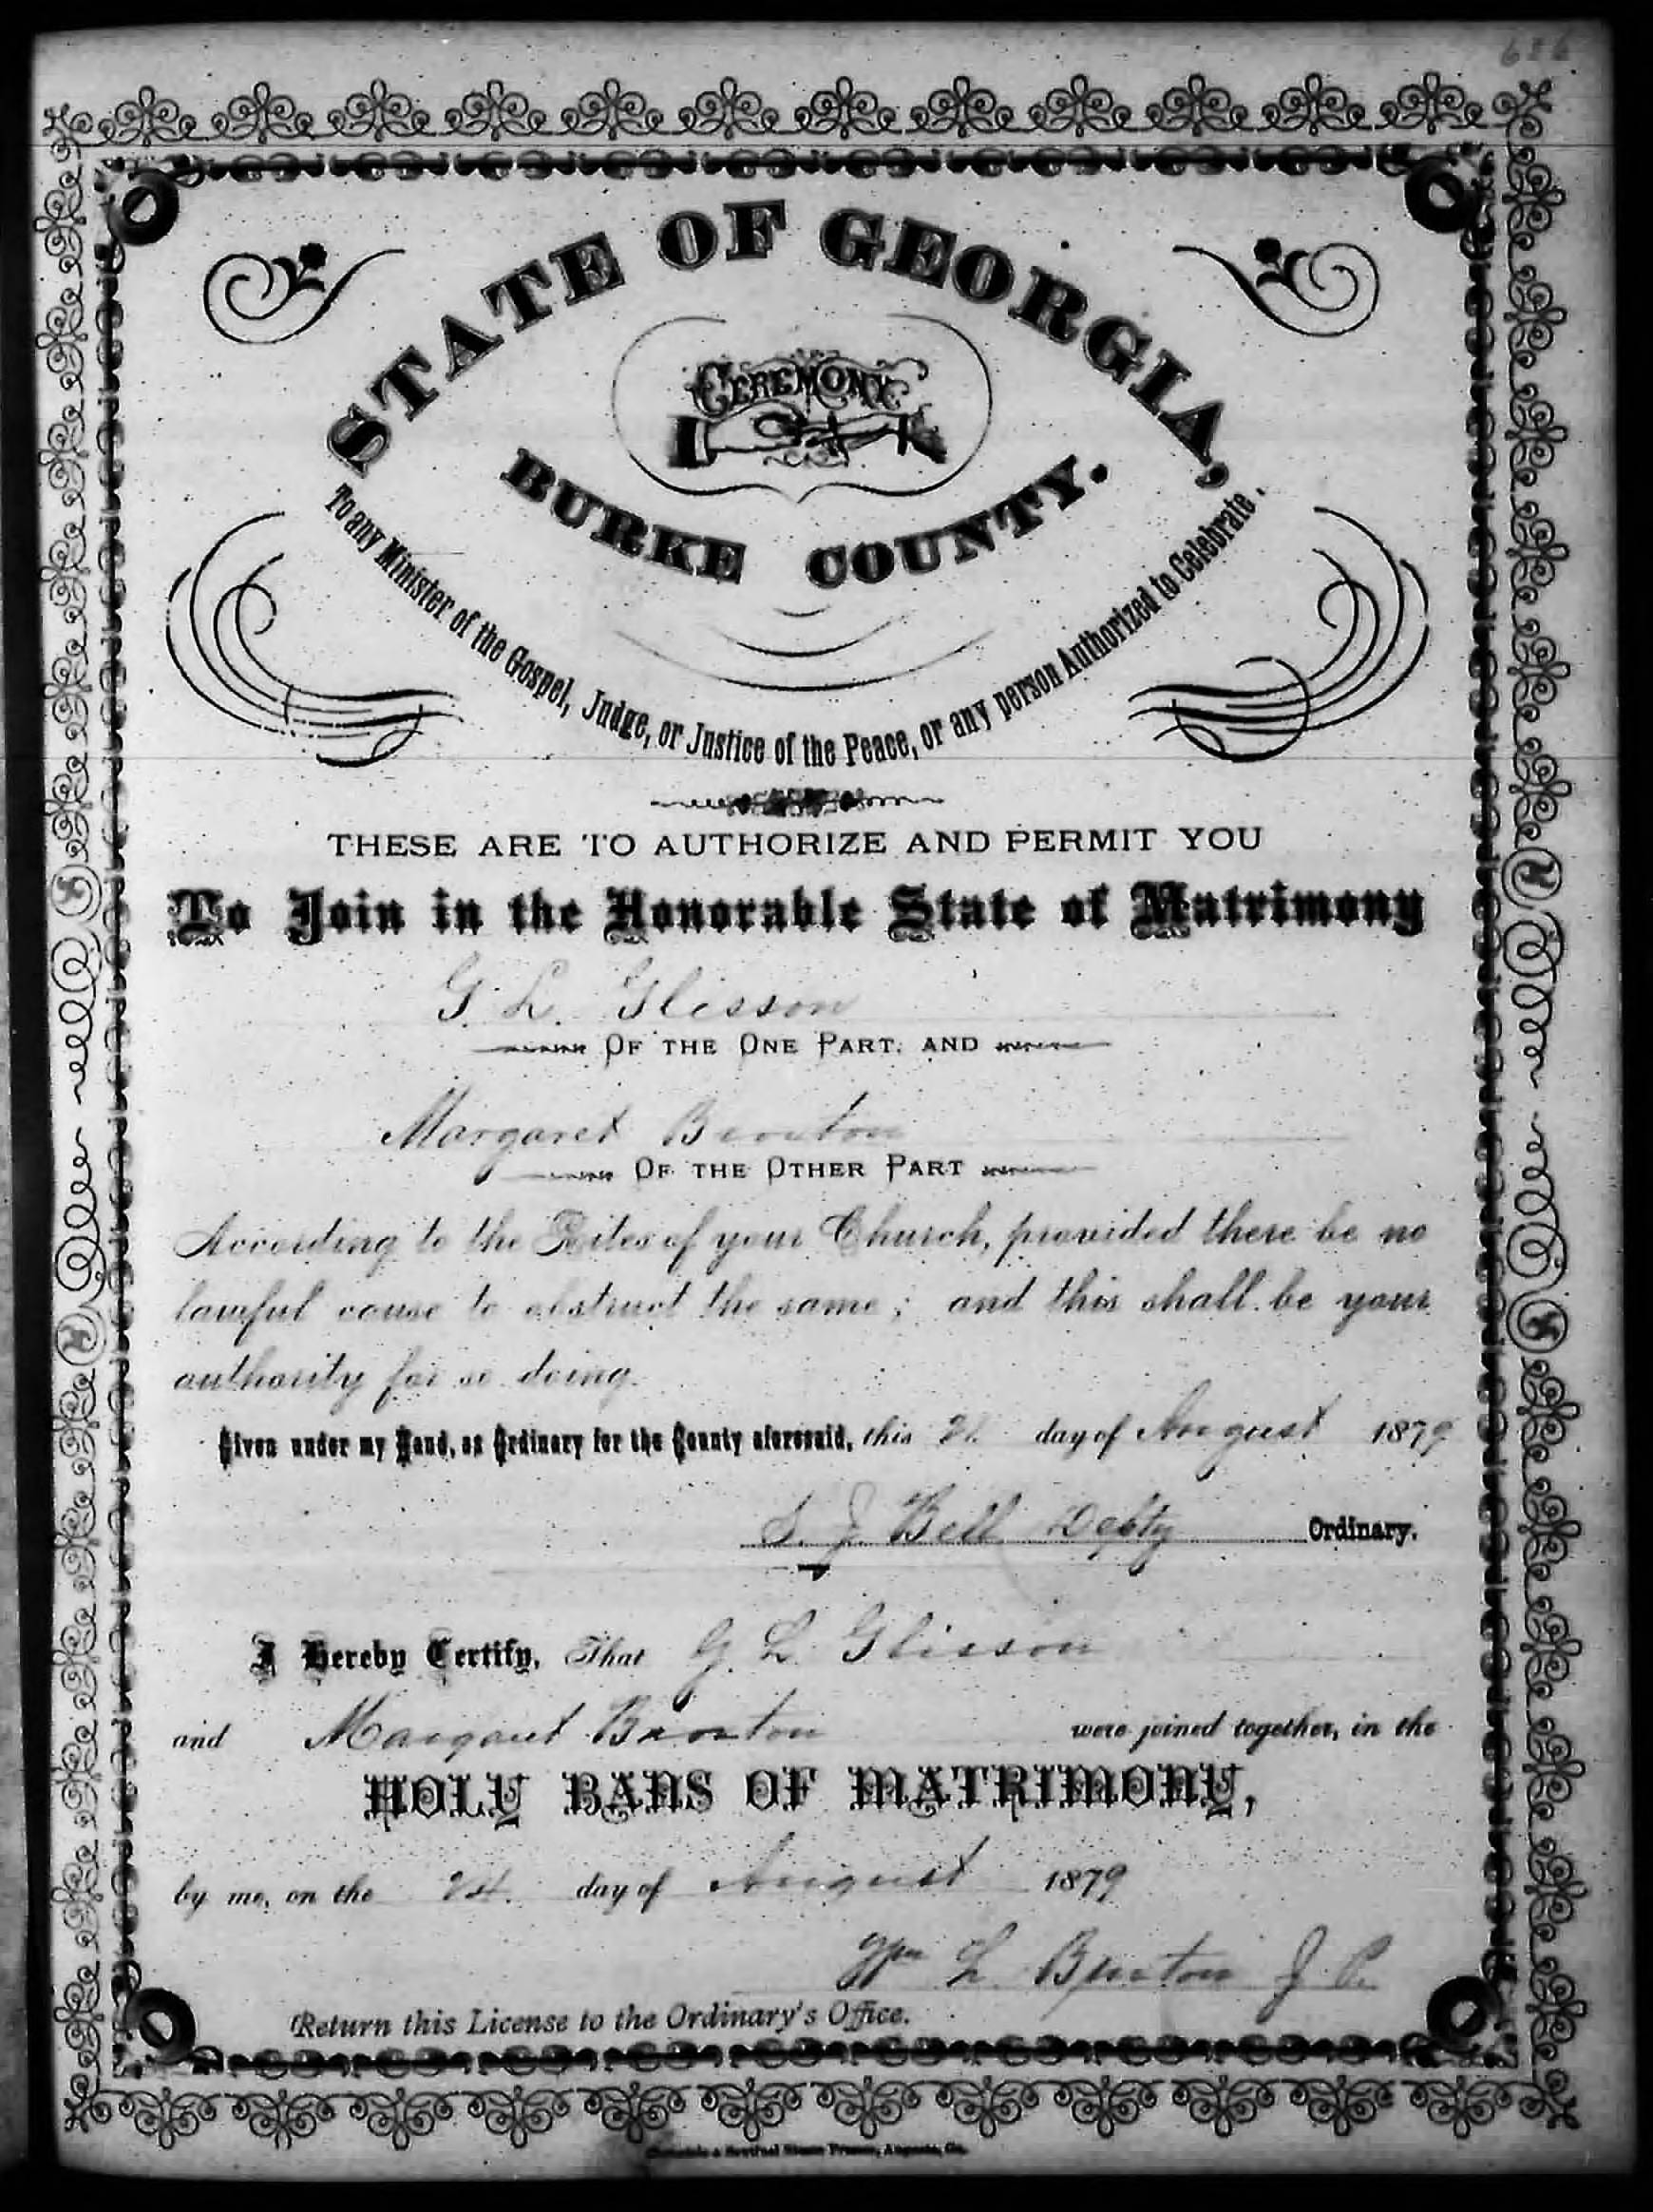 STATE OF GEORGIA,
CEREMONY
BURKE COUNTY.
To any Minister of the Gospel, Judge, or Justice of the Peace, or any person Authorized to Celebrate.
THESE ARE TO AUTHORIZE AND PERMIT YOU
To Join in the Honorable State of Matrimony
G. L. Glisson
OF THE ONE PART, AND
Margaret
OF THE OTHER PART
According to the Rites of your Church, provided there be no
lawful cause to obstruct the same; and this shall be your
authority for so doing.
Given under my Hand, as Ordinary for the County aforesaid, this 21 day of August 1879
S. J. Bell Depty Ordinary.
I Hereby Certify, That G. L. Glisson
and Margaret were joined together, in the
HOLY BANS OF MATRIMONY,
by me, on the 24 day of August 1879
Wm L J. P.
Return this License to the Ordinary's Office.
Chronicle & Sentinel Steam Presses, Augusta, Ga.